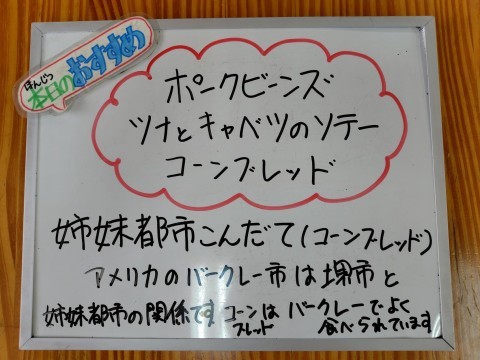 ほんじつ
本日のおすすめ
ポークビーンズ
ツナとキャベツのソテー
コーンブレッド
姉妹都市こんだて(コーンブレッド)
アメリカのバークレー市は堺市と
姉妹都市の関係です コーンブレッドは バークレーでよく食べられています